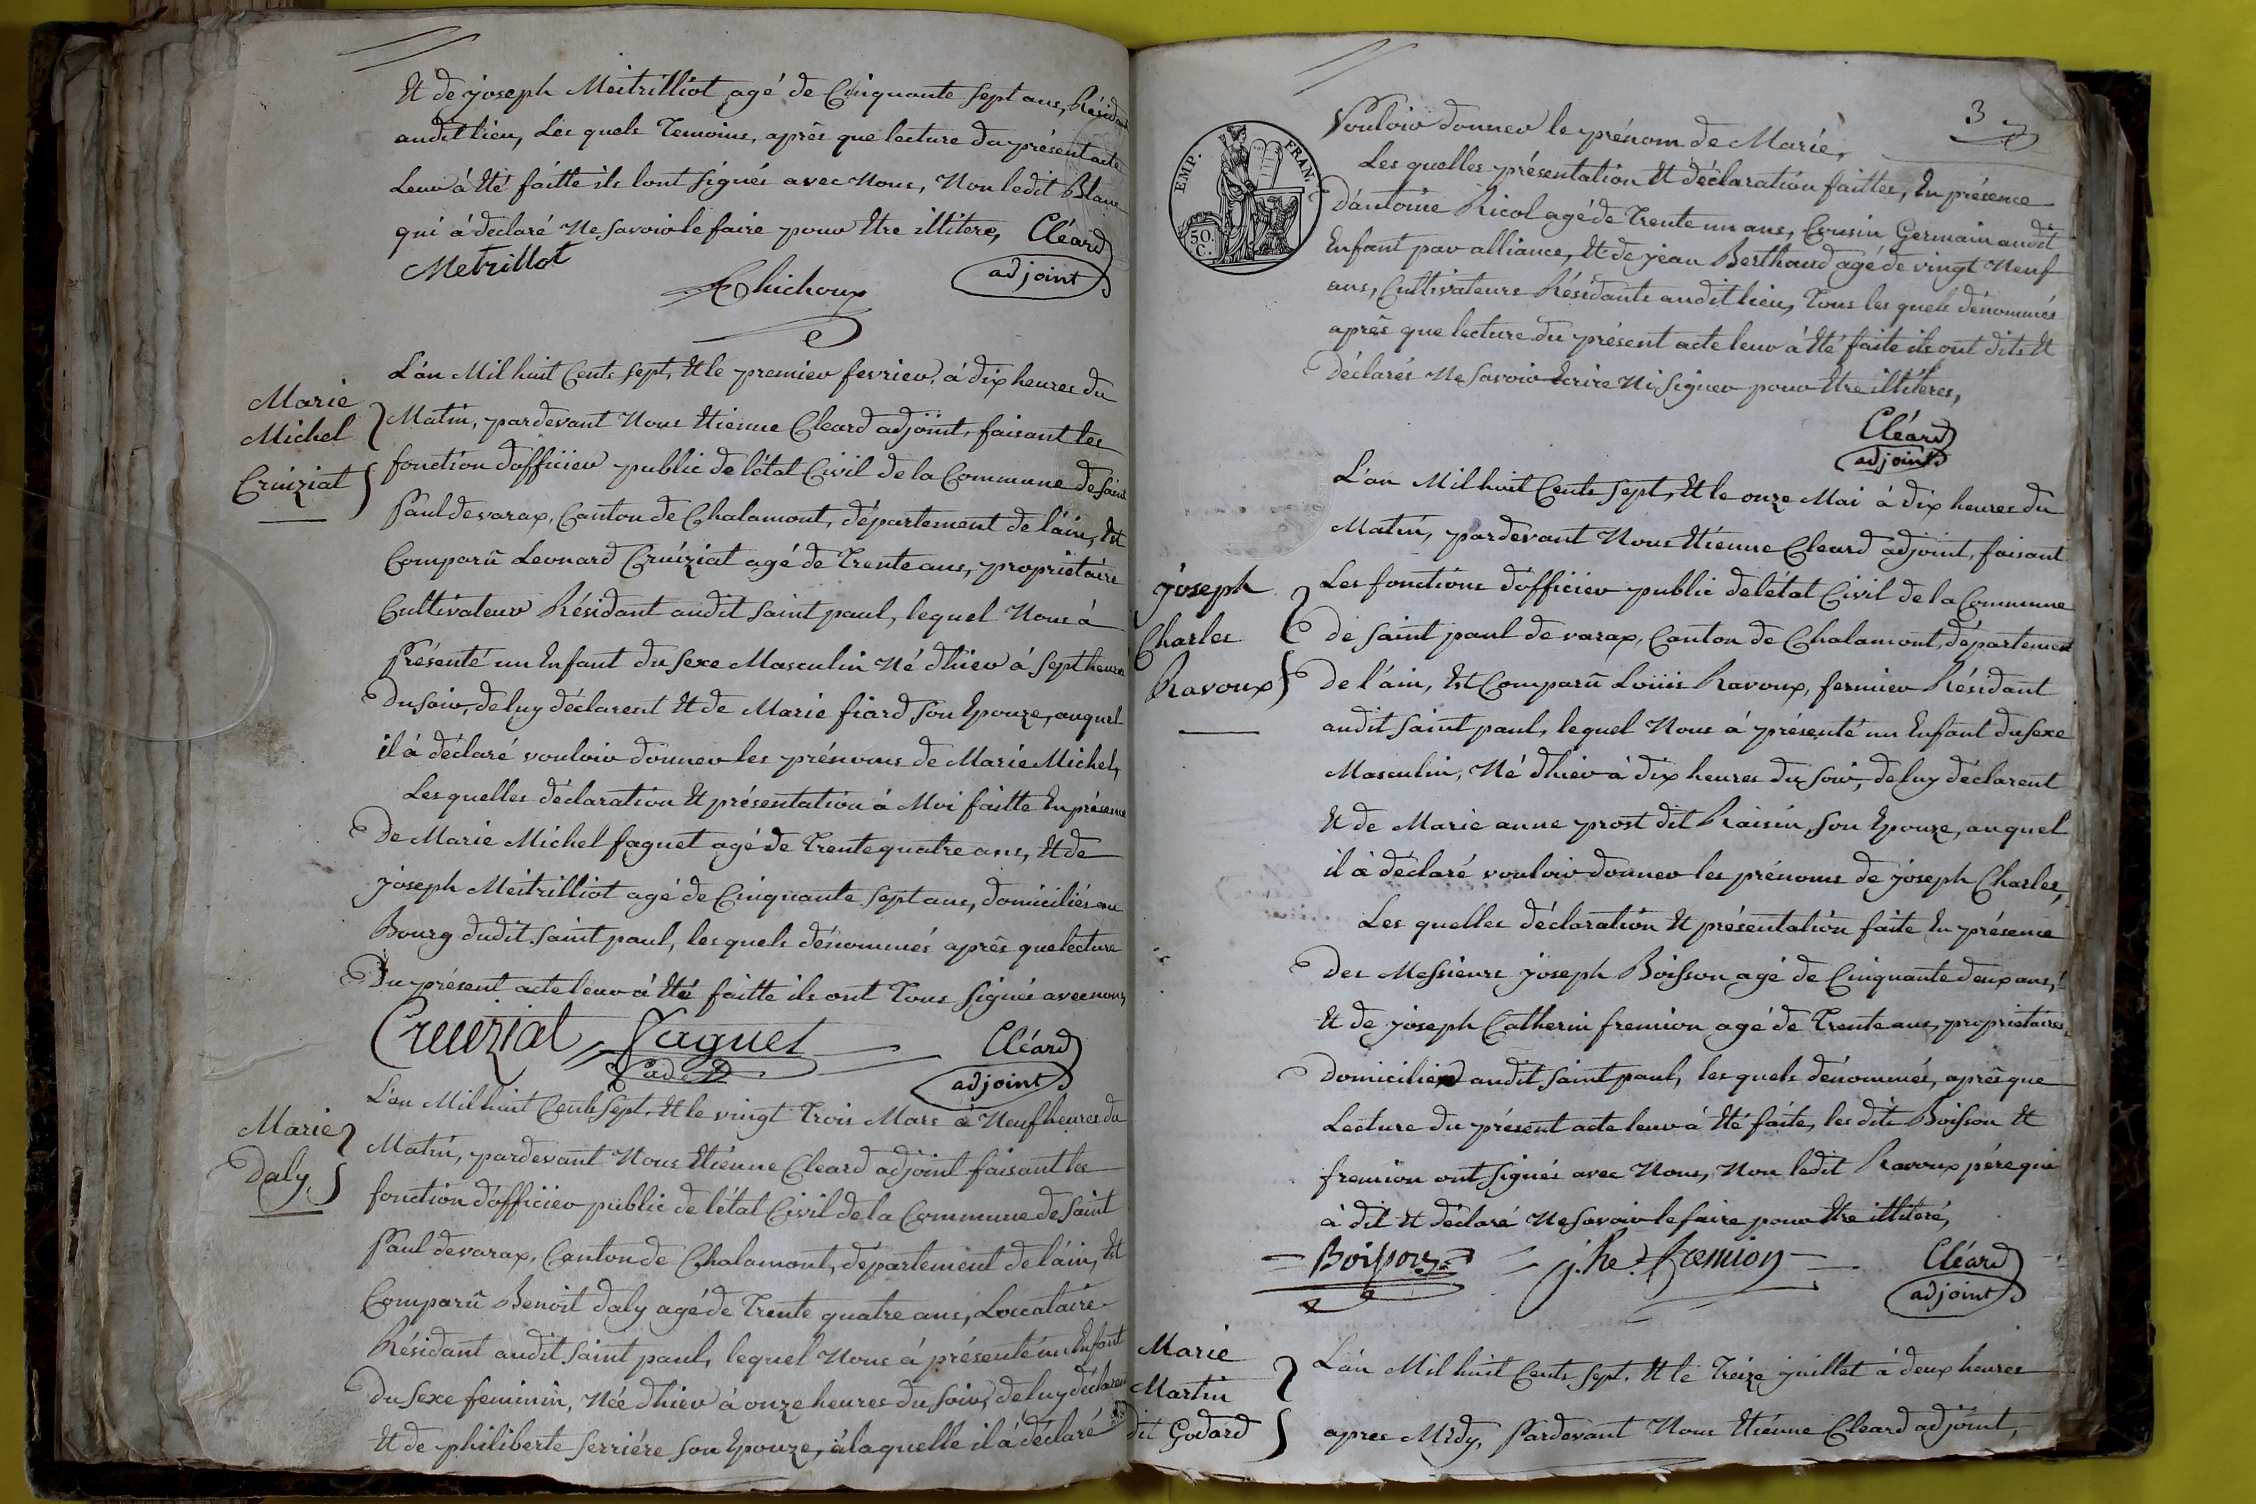 Et de joseph Meitrilliot agé de Cinquante sept ans, Résidant
audit lieu, Les quels Temoins, aprês que lecture du présent acte
Leur à Eté faitte ils lont signés avec Nous, Non ledit Blanc
qui à déclaré Ne savoir le faire pour Etre illitere,
Cléard
adjoint
Metrillot
Chichoux
Marie
Michel
Cruiziat
L'an Mil huit Cents sept, Et le premier fevrier, à dix heures du
Matin, pardevant Nous Etienne Cleard adjoint, faisant les
fonction d'officier public de l'état Civil de la Commune de Saint
Paul de varax, Canton de Chalamont, département de l'ain, Est
Comparû Leonard Cruiziat agé de Trente ans, propriétaire
Cultivateur Résidant audit saint paul, lequel Nous à
Présenté un Enfant du sexe Masculin Né d'hier à sept heures
Du soir, de luy déclarent Et de Marie fiard son Epouze, auquel
il à déclaré vouloir donner les prénoms de Marie Michel,
Les quelles déclaration Et présentation à Moi faitte En présence
De Marie Michel faguet agé de Trente quatre ans, Et de
joseph Meitrilliot agé de Cinquante sept ans, domiciliés au
Bourg dudit saint paul, les quels dénommés aprês que lecture
Du présent acte leur à Eté faitte ils ont Tous signés avec nous,
Cruiziat
Faguet
Cléard
adjoint
Marie
Daly,
L'an Mil huit Cents sept, Et le vingt Trois Mars à Neuf heures du
Matin, pardevant Nous Etienne Cleard adjoint faisant les
fonction d'officier public de l'état Civil de la Commune de Saint
Paul de varax, Canton de Chalamont, département de l'ain, Est
Comparû Benoit daly agé de Trente quatre ans, Locataire
Résidant audit saint paul, lequel Nous à présenté un Enfant
Du sexe feminin, Née d'hier à onze heures du soir, de luy déclarent
Et de philiberte ferriére son Epouze, à laquelle il à déclaré
3
EMP. FRAN.
50. C.
Vouloir donner le prénom de Marie,
Les quelles présentation Et déclaration faittes, En présence
D'antoine Ricol agé de Trente un ans, Cousin Germain audit
Enfant par alliance, Et de jean Berthaud agé de vingt Neuf
ans, Cultivateurs Résidants audit lieu, Tous les quels dénommés
aprês que lecture du présent acte leur à Eté faite ils ont dits Et
Déclarés Ne savoir Ecrire Ni signer pour Etre illiteres,
Cléard
adjoint
joseph
Charles
Ravoux
L'an Mil huit Cents sept, Et le onze Mai à dix heures du
Matin, pardevant Nous Etienne Cleard adjoint, faisant
Les fonctions d'officier public de l'état Civil de la Commune
de saint paul de varax, Canton de Chalamont, département
de l'ain, Est Comparû Louis Ravoux, fermier Résidant
audit saint paul, lequel Nous à présenté un Enfant du sexe
Masculin, Né d'hier à dix heures du soir, de luy déclarent
Et de Marie anne prost dit Raisin, son Epouze, auquel
il à déclaré vouloir donner les prénoms de joseph Charles,
Les quelles déclaration Et présentation faite En présence
Des Messieurs joseph Boisson agé de Cinquante deux ans,
Et de joseph Catherin fremion agé de Trente ans, propriétaires,
domiciliés audit saint paul, les quels dénommés, aprês que
Lecture du présent acte leur à Eté faite, les dits Boisson Et
fremion ont signés avec Nous, Non ledit Ravoux pére qui
à dit Et déclaré Ne savoir le faire pour Etre illiteré,
Boisson
j. he fremion
Cléard
adjoint
Marie
Martin
dit Godard
L'an Mil huit Cents sept, Et le Treize juillet à deux heures
apres Midy, Pardevant Nous Etienne Cleard adjoint,